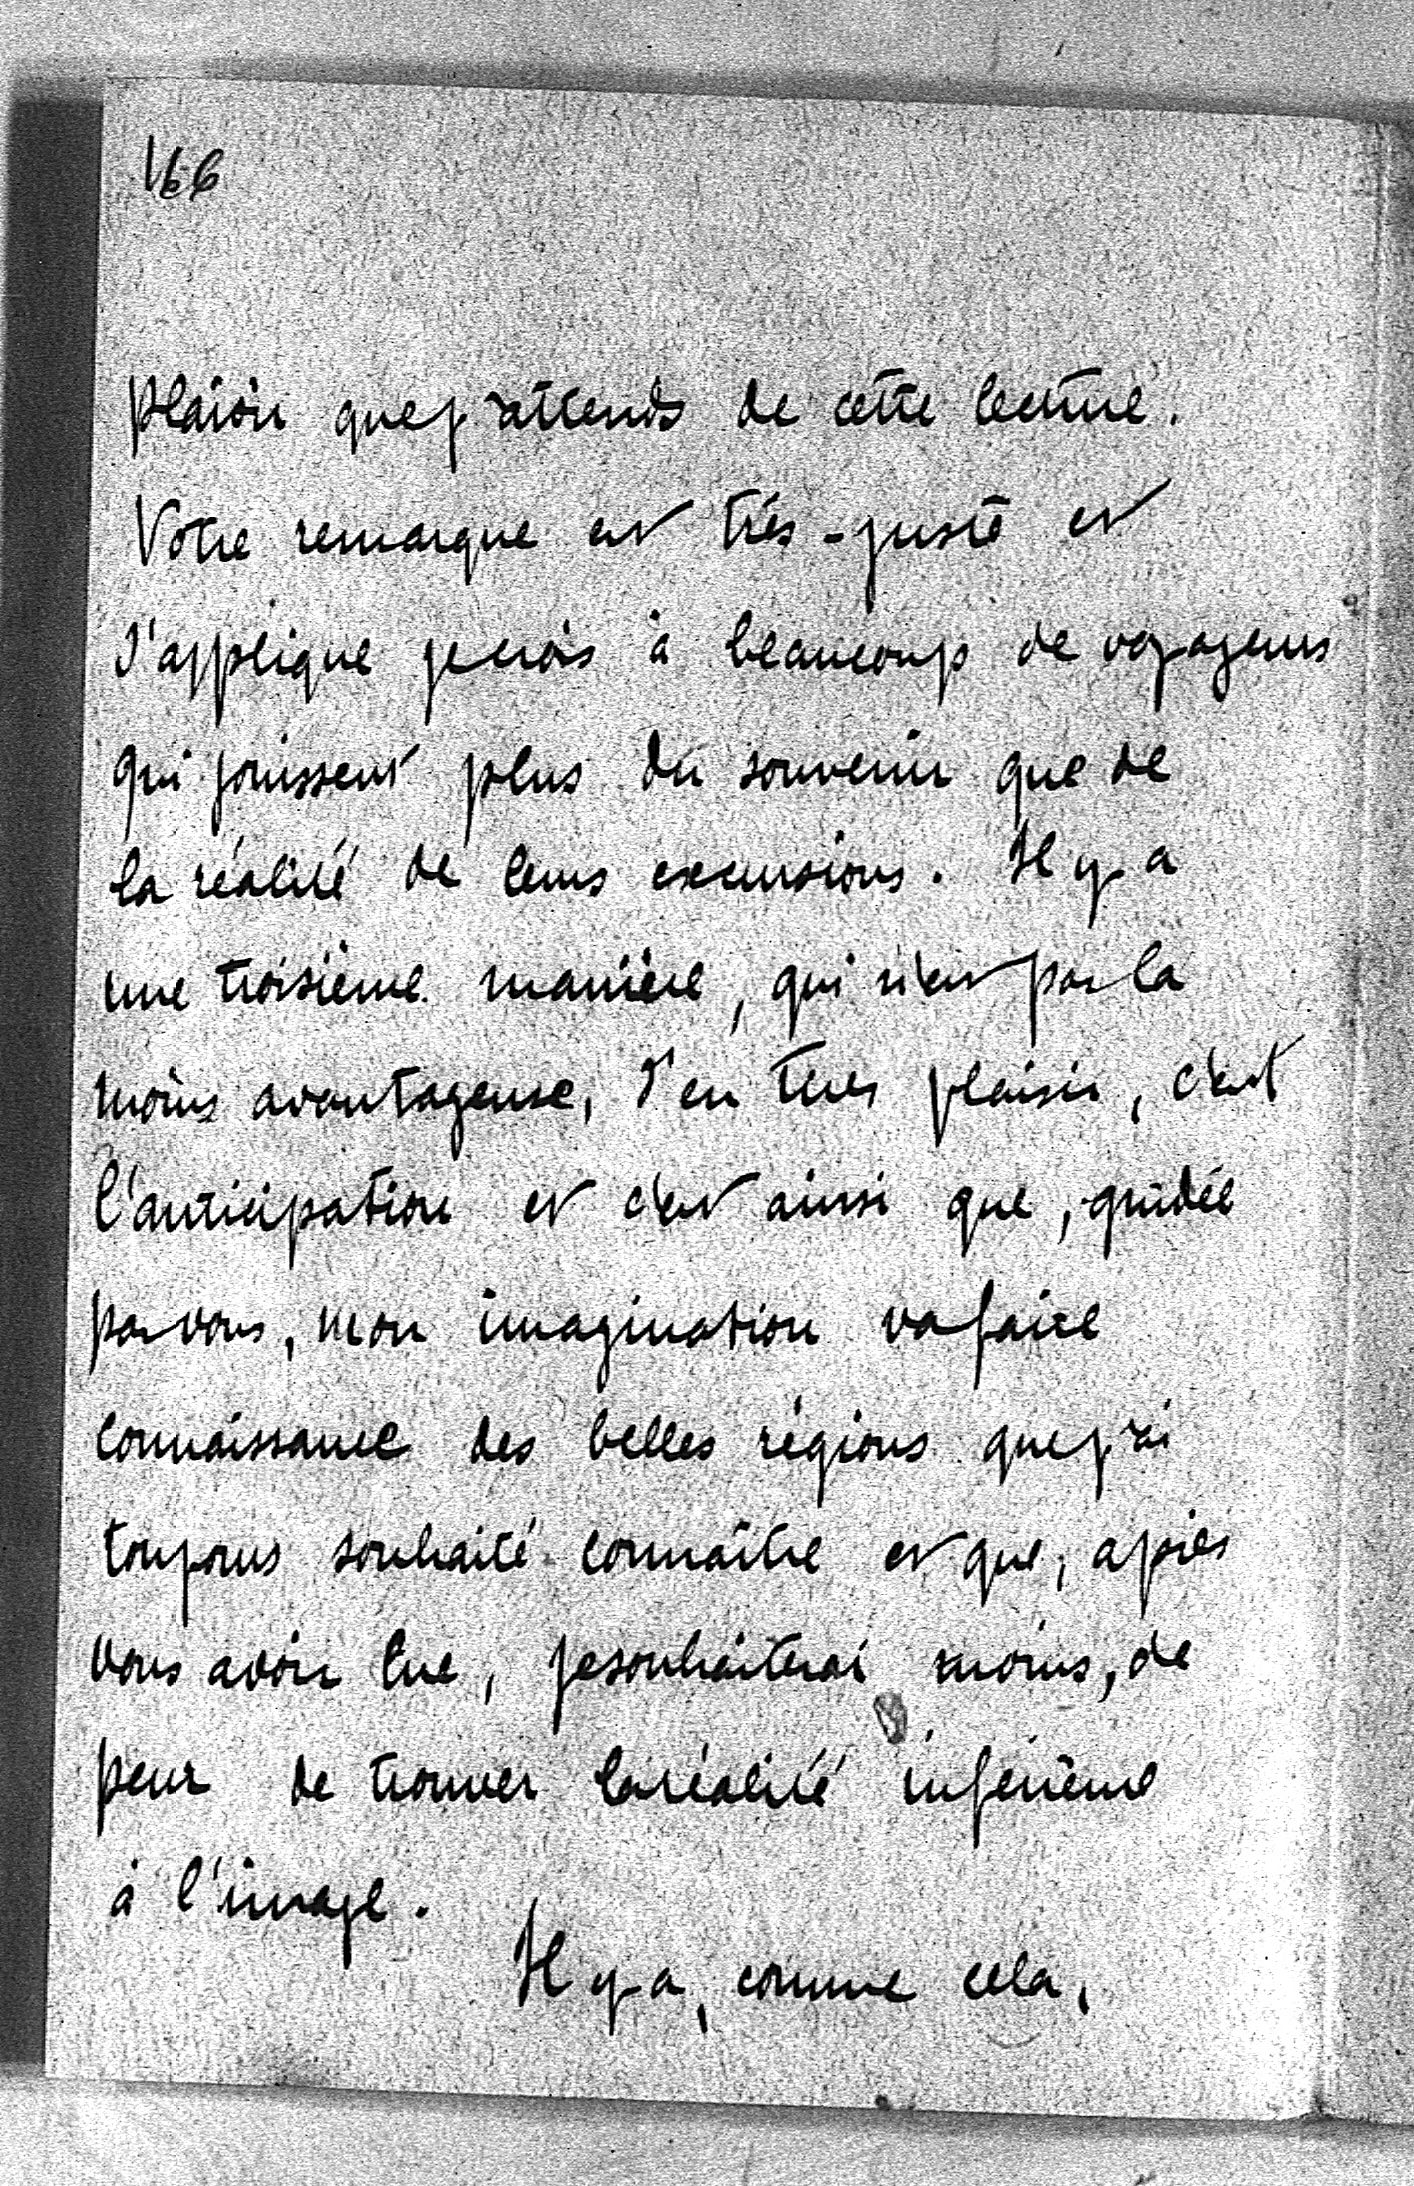 166
plaisir que j'attends de cette lecture.
Votre remarque est très-juste et
s'applique je crois à beaucoup de voyageurs
qui jouissent plus du souvenir que de
la réalité de leurs excursions. Il y a
une troisième manière, qui n'est pas la
moins avantageuse, d'en tirer plaisir, c'est
l'anticipation et c'est ainsi que, guidée
par vous, mon imagination va faire
connaissance des belles régions que j'ai
toujours souhaité connaître et que, après
vous avoir lue, je souhaiterai moins, de
peur de trouver la réalité inférieure
à l'image.
Il y a, comme cela,